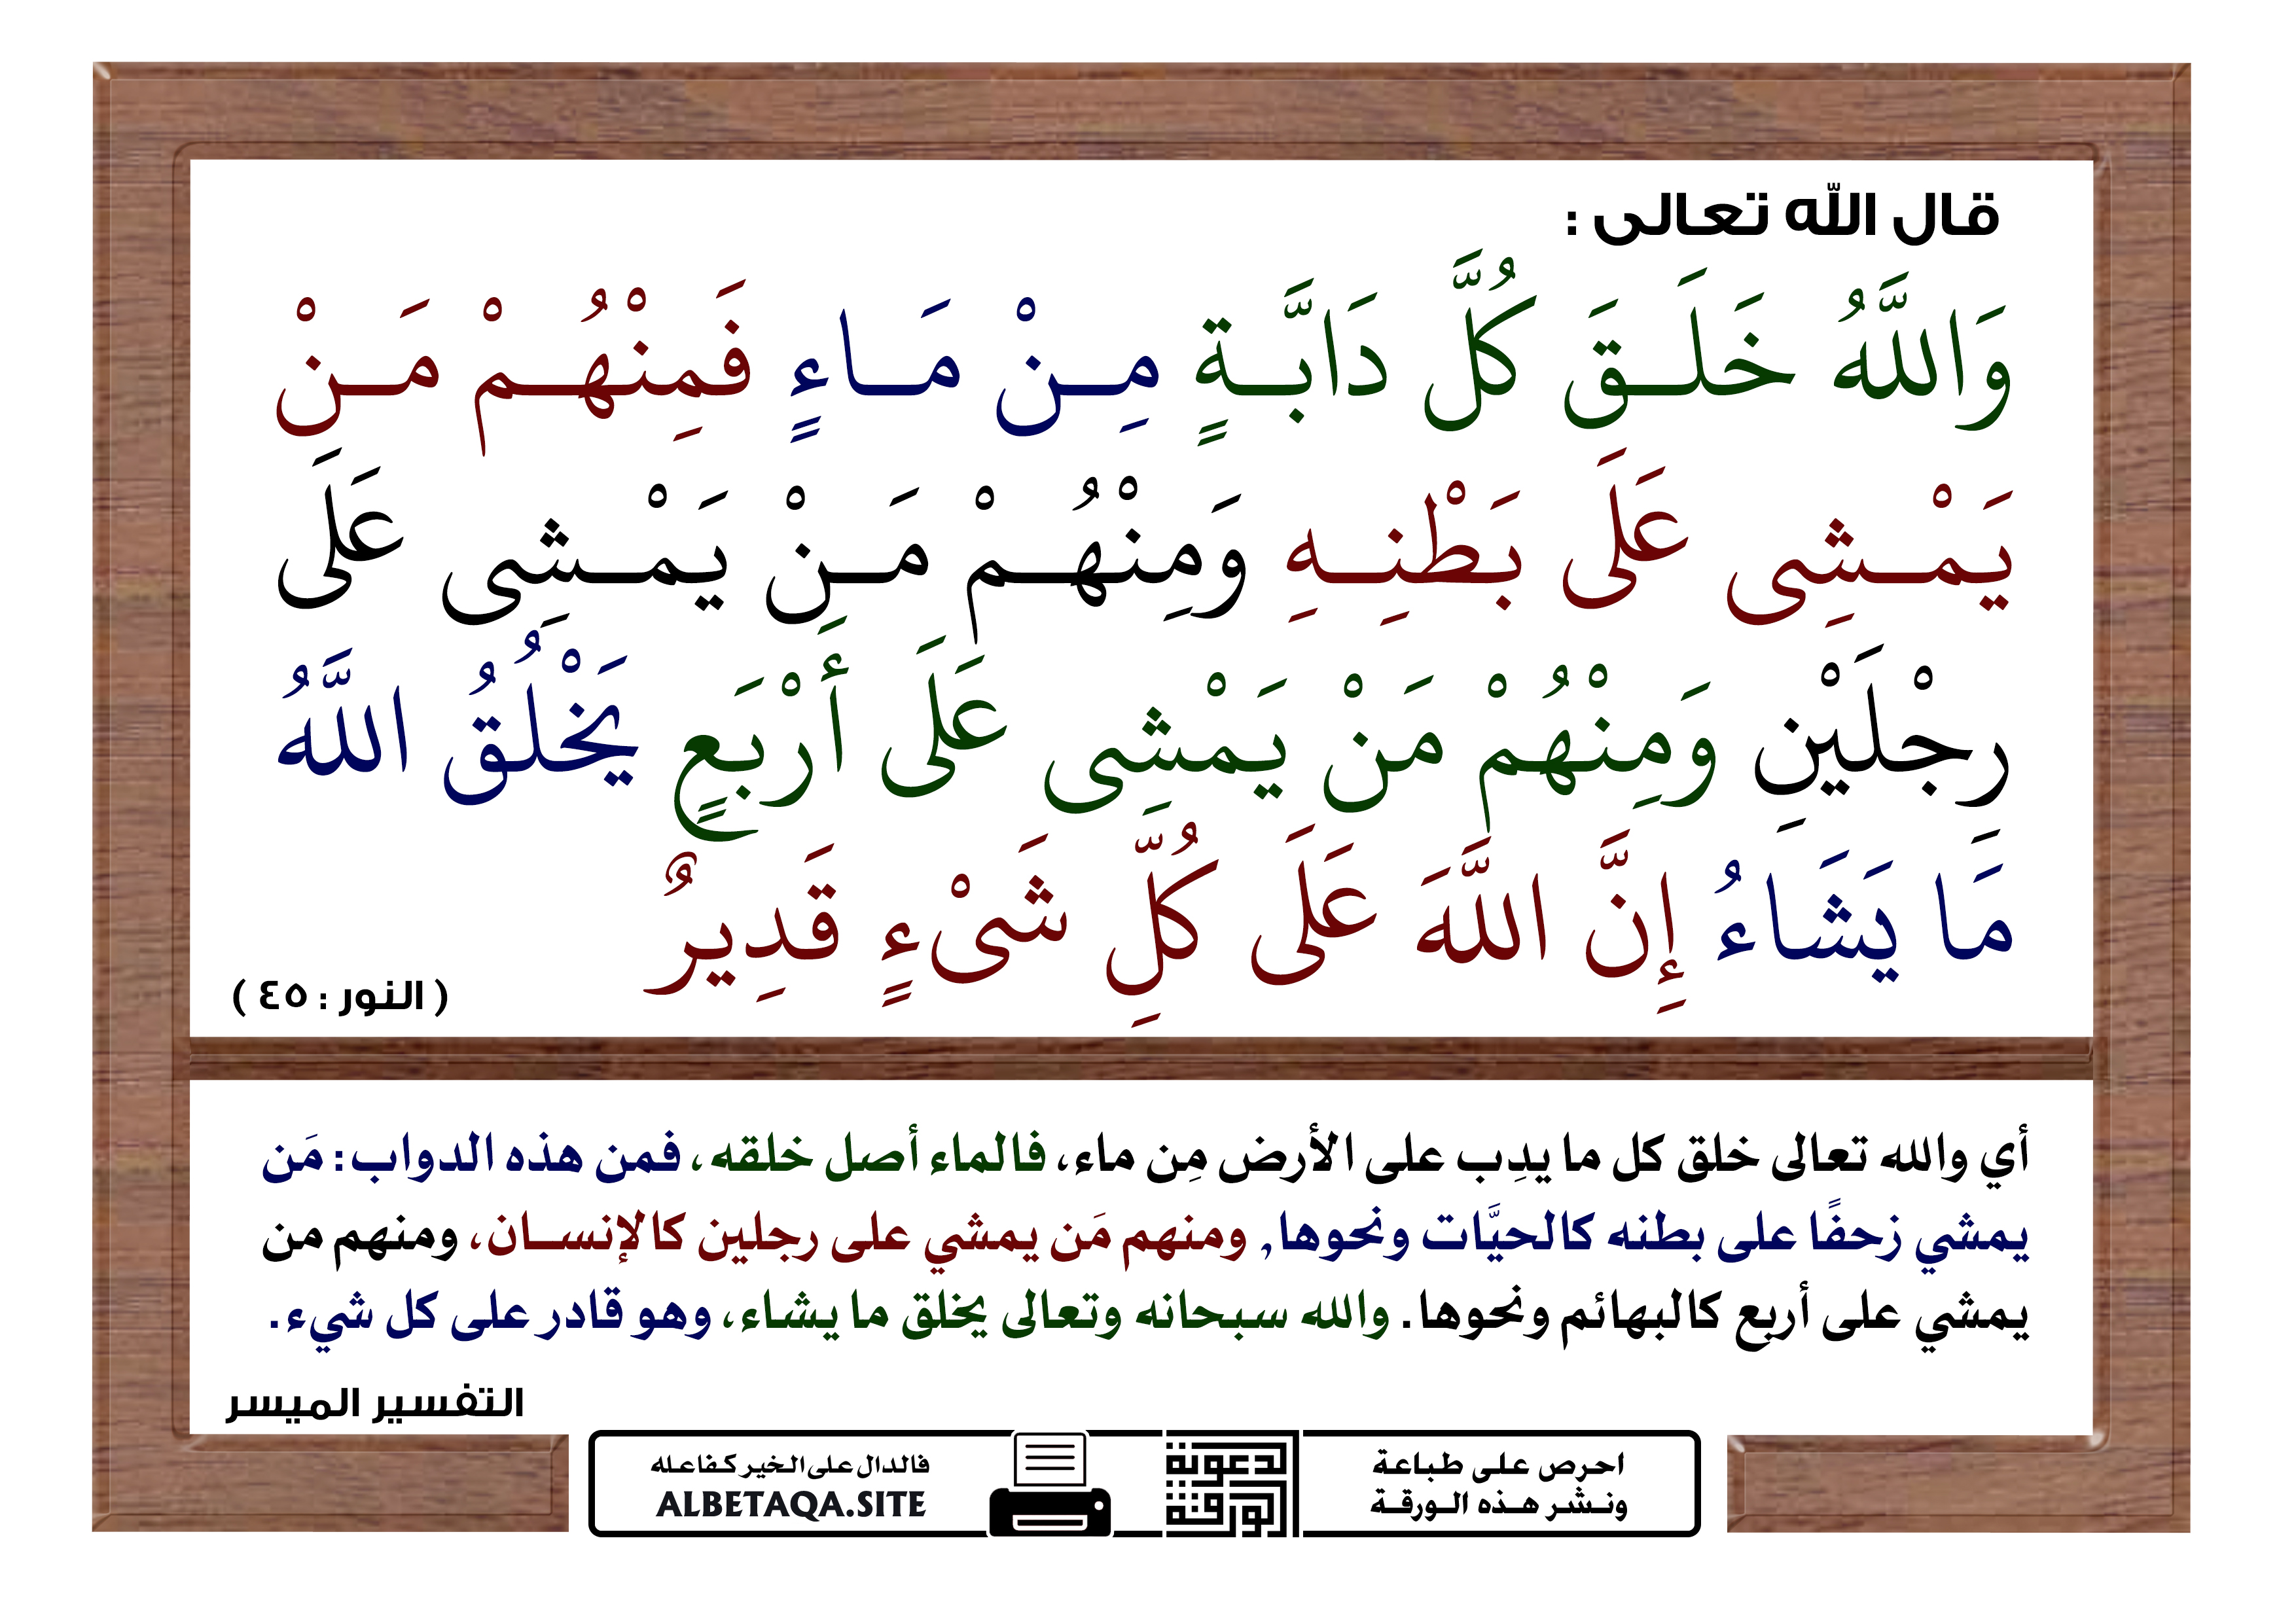 قال الله تعالى :
وَاللَّهُ خَلَقَ كُلَّ دَابَّةٍ مِنْ مَاءٍ فَمِنْهُمْ مَنْ
يَمْشِى عَلَى بَطْنِهِ وَمِنْهُمْ مَنْ يَمْشِى عَلَى
رِجْلَيْنِ وَمِنْهُمْ مَنْ يَمْشِى عَلَى أَرْبَعٍ يَخْلُقُ اللَّهُ
مَا يَشَاءُ إِنَّ اللَّهَ عَلَى كُلِّ شَىْءٍ قَدِيرٌ
( النور : ٤٥ )
أي والله تعالى خلق كل ما يدِب على الأرض مِن ماء، فالماء أصل خلقه، فمن هذه الدواب: مَن
يمشي زحفًا على بطنه كالحيَّات ونحوها, ومنهم مَن يمشي على رجلين كالإنسان، ومنهم من
يمشي على أربع كالبهائم ونحوها. والله سبحانه وتعالى يخلق ما يشاء، وهو قادر على كل شيء.
التفسير الميسر
احرص على طباعة
ونشر هذه الورقة
الدعوية
الورقة
فالدال على الخير كفاعله
ALBETAQA.SITE